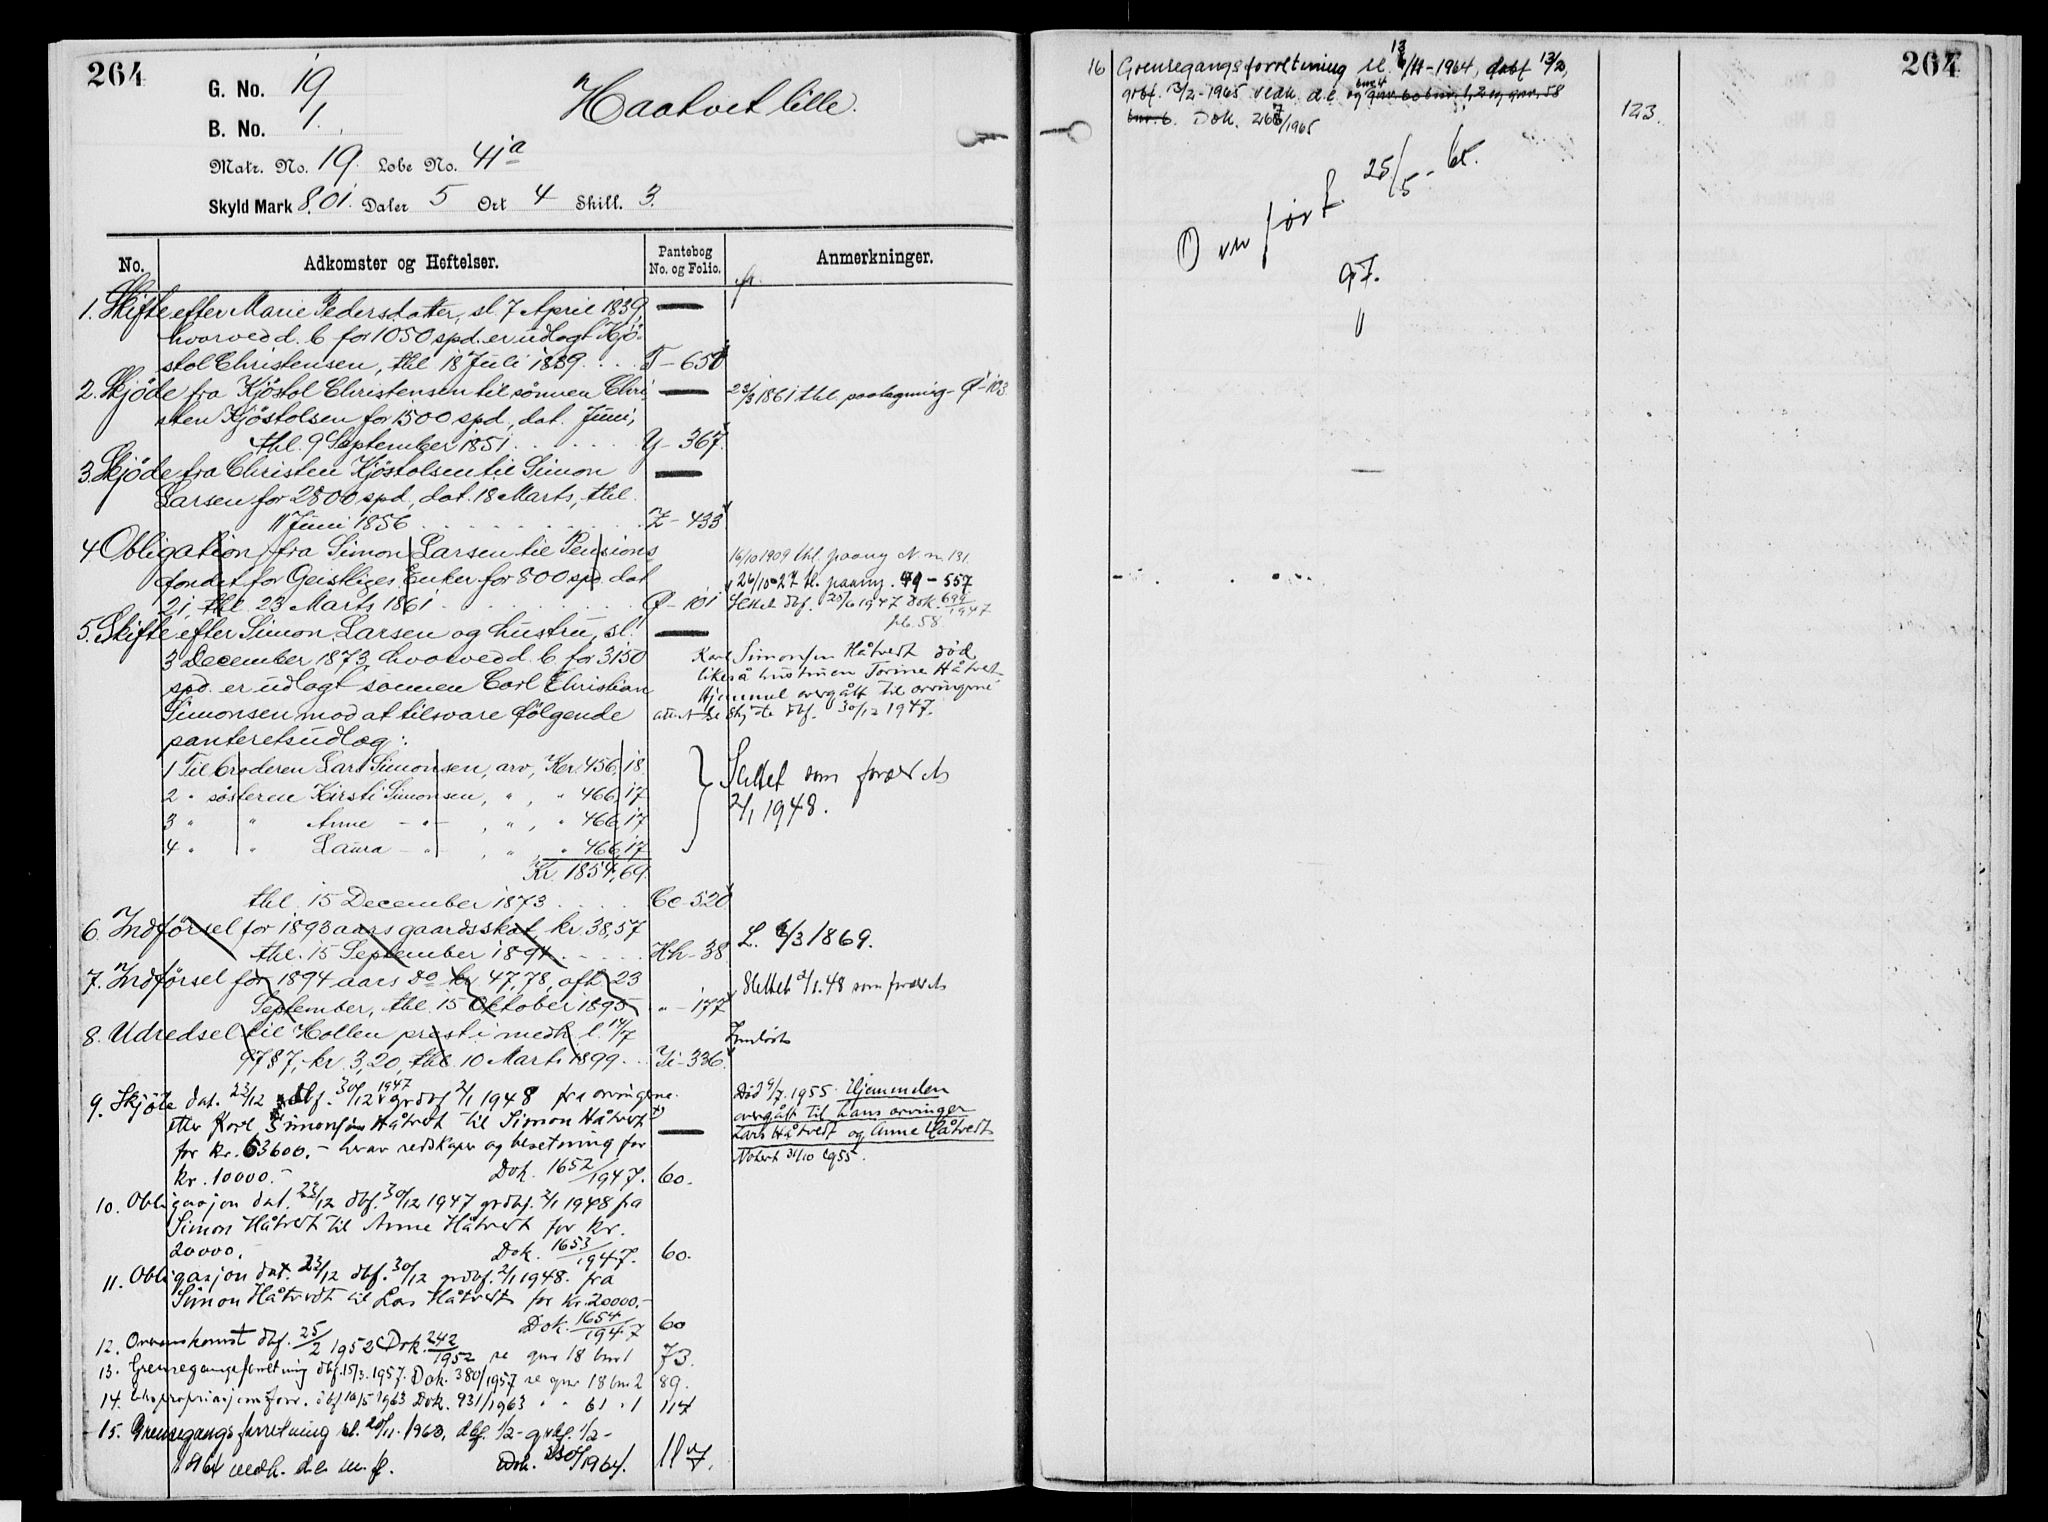 264
G. No. 19
B. No. 1.
Haatvet lille.
Matr. No. 19. Løbe No. 41a
Skyld Mark 8.01. Daler 5 Ort 4 Skill. 3.
No. Adkomster og Heftelser. Pantebog No. og Folio. Anmerkninger.
1. Skifte efter Marie Pedersdatter, sl. 7 April 1839,
hvorved d. b. for 1050 spd. er udlagt Kjö-
stol Christensen, thl. 18 Juli 1839. T - 651
2. Skjöde fra Kjöstol Christensen til sönnen Chri-
sten Kjöstolsen for 1500 spd., dat. Juni, 23/3 1861 thl. paategning - Φ - 103.
thl. 9 September 1851. Y - 367.
3. Skjöde fra Christen Kjöstolsen til Simon
Larsen for 2800 spd., dat. 18 Marts, thl.
11 Juni 1856 Z - 433
4 Obligation fra Simon Larsen til Pensions-
fondet for Geistliges Enker for 800 spd. dat. 16/10 1909 thl. paany N n. 131.
21, thl. 23 Marts 1861 Φ - 101 26/10-27 tl. paany. 49 - 557
Slettet dbf. 25/6 1947 Dok. 699/1947
pb. 58
5. Skifte efter Simon Larsen og hustru, sl.
3 December 1873, hvorved d. b. for 3150
spd. er udlagt sönnen Carl Christian
Simonsen mod at tilsvare fölgende
panteretsudlæg:
Karl Simonsen Håtvedt död
likeså hustruen Torine Håtvedt
Hjemmel overgått til arvingene
att. N. Se skjöte dbf. 30/12 1947.
1 Til broderen Lars Simonsen, arv, Kr. 456,18.
2 " sösteren Kirsti Simonsen, " , " 466,17
3 " " Anne - " - , " , " 466,17
4 " " Laura - " - , " " 466,17
Kr. 1854,69.
Slettet som foreldet
2/1 1948.
thl. 15 December 1873 Cc - 520
6. Indförsel for 1893 aars gaardsskat, kr. 38,57
thl. 15 September 1894. Hh - 38 L. 6/3 1869.
7. Indförsel for 1894 aars do kr. 47,78, afh. 23
September, thl. 15 Oktober 1895 " - 177 Slettet 2/1.48 som foreldet
8. Udredsel til Hollen prest i medh. l. 14/7
9787, kr. 3,20, thl. 10 Marts 1899. Ii - 336.
9. Skjöte dat. 23/12 dbf. 30/12 1947 grdbf. 2/1 1948 fra arvingene
etter Karl Simonsen Håtvedt til Simon Håtvedt
for kr. 63600.- hvorav redskaper og besetning for
kr. 10000.- Dok. 1652/1947. 60.
Död 9/7.1955. Hjemmelen
overgått til hans arvinger
Lars Håtvedt og Anne Håtvedt
Notert 31/10 1955.
10. Obligasjon dat. 23/12 dbf. 30/12 1947 grdbf. 2/1 1948 fra
Simon Håtvedt til Anne Håtvedt for kr.
20000. Dok. 1653/1947. 60.
11. Obligasjon dat. 23/12 dbf. 30/12 grdbf. 2/1 1948. fra
Simon Håtvedt til Lars Håtvedt for kr. 20000.-
Dok. 1654/1947 60
12. Overenskomst dbf. 25/2 1952 Dok. 242/1952 se gnr 18 bnr 1 73.
13. Grensegangsforretning dbf. 15/3.1957. Dok. 380/1957 se gnr 18 bnr 2 89.
14. Ekspropriasjonsforr. dbf. 10/5 1963 Dok. 931/1963 " " 61 " 1 114
15. Grensegangsforretning sl. 20/11-1963, dbf. 1/2- grdbf. 1/2-
1964 vedk. d.e. m. fl. Dok. /1964. 117.
264
16 Grensegangsforretning sl. 13/11-1964, dabf 13/2,
grbf. 13/2-1965 vedk. d.e. og gnr. 60 bnr. 1, 2 og gnr. 58
bnr. 6. Dok. 267/1965 123.
Overfört 25/5-65.
97.
"